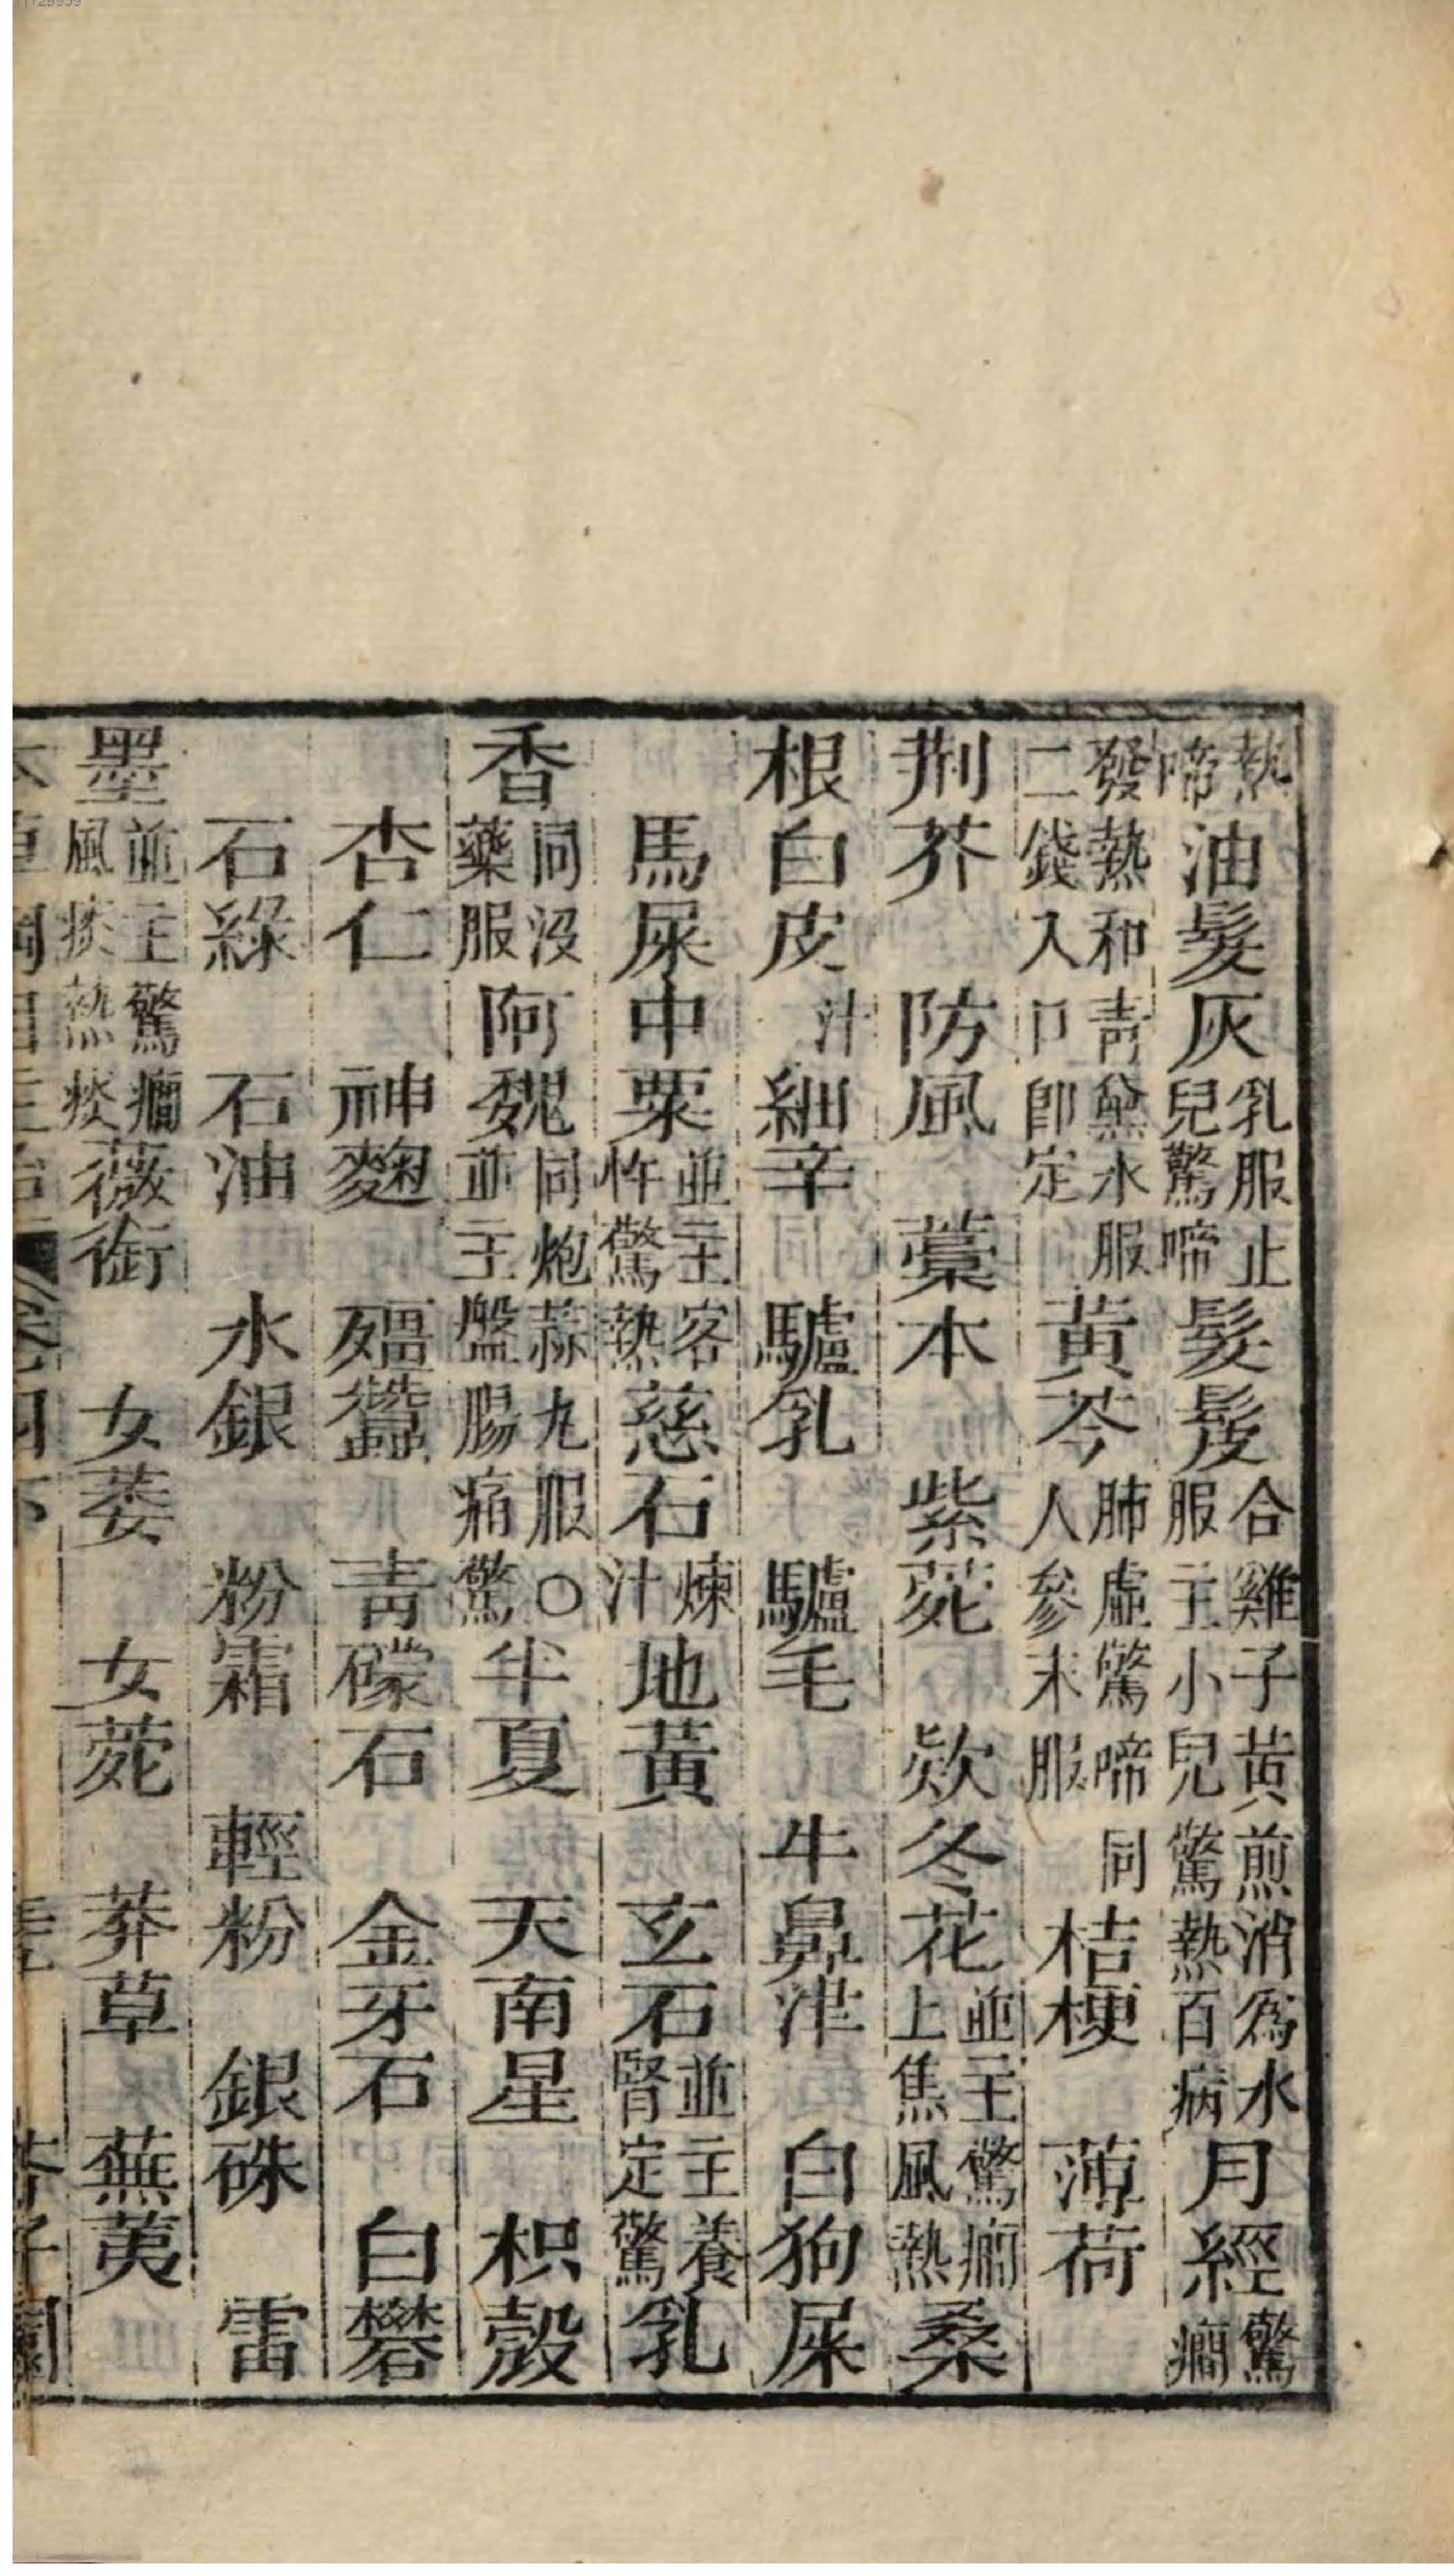 熱啼油髮灰乳服止兒驚啼髮髲合雞子黃煎消爲水服主小兒驚熱百病月經驚癎
發熱和靑黛水服二錢入口卽定黃芩肺虛驚啼同人參末服桔梗 薄荷
荆芥 防風 藁本 紫菀 欵冬花並主驚癎上焦風熱桑
根白皮汁細辛 驢乳 驢毛 牛鼻津 白狗屎
馬屎中粟並主客忤驚熱慈石煉汁地黃 玄石並主養腎定驚乳
香同沒藥服阿魏同炮蒜九服〇並主盤腸痛驚半夏 天南星 枳殼
杏仁 神麴 殭蠶 靑礞石 金牙石 白礬
石綠 石油 水銀 粉霜 輕粉 銀硃 雷
墨並主驚癎風痰熱痰薇銜 女萎 女菀 莽草 蕪荑